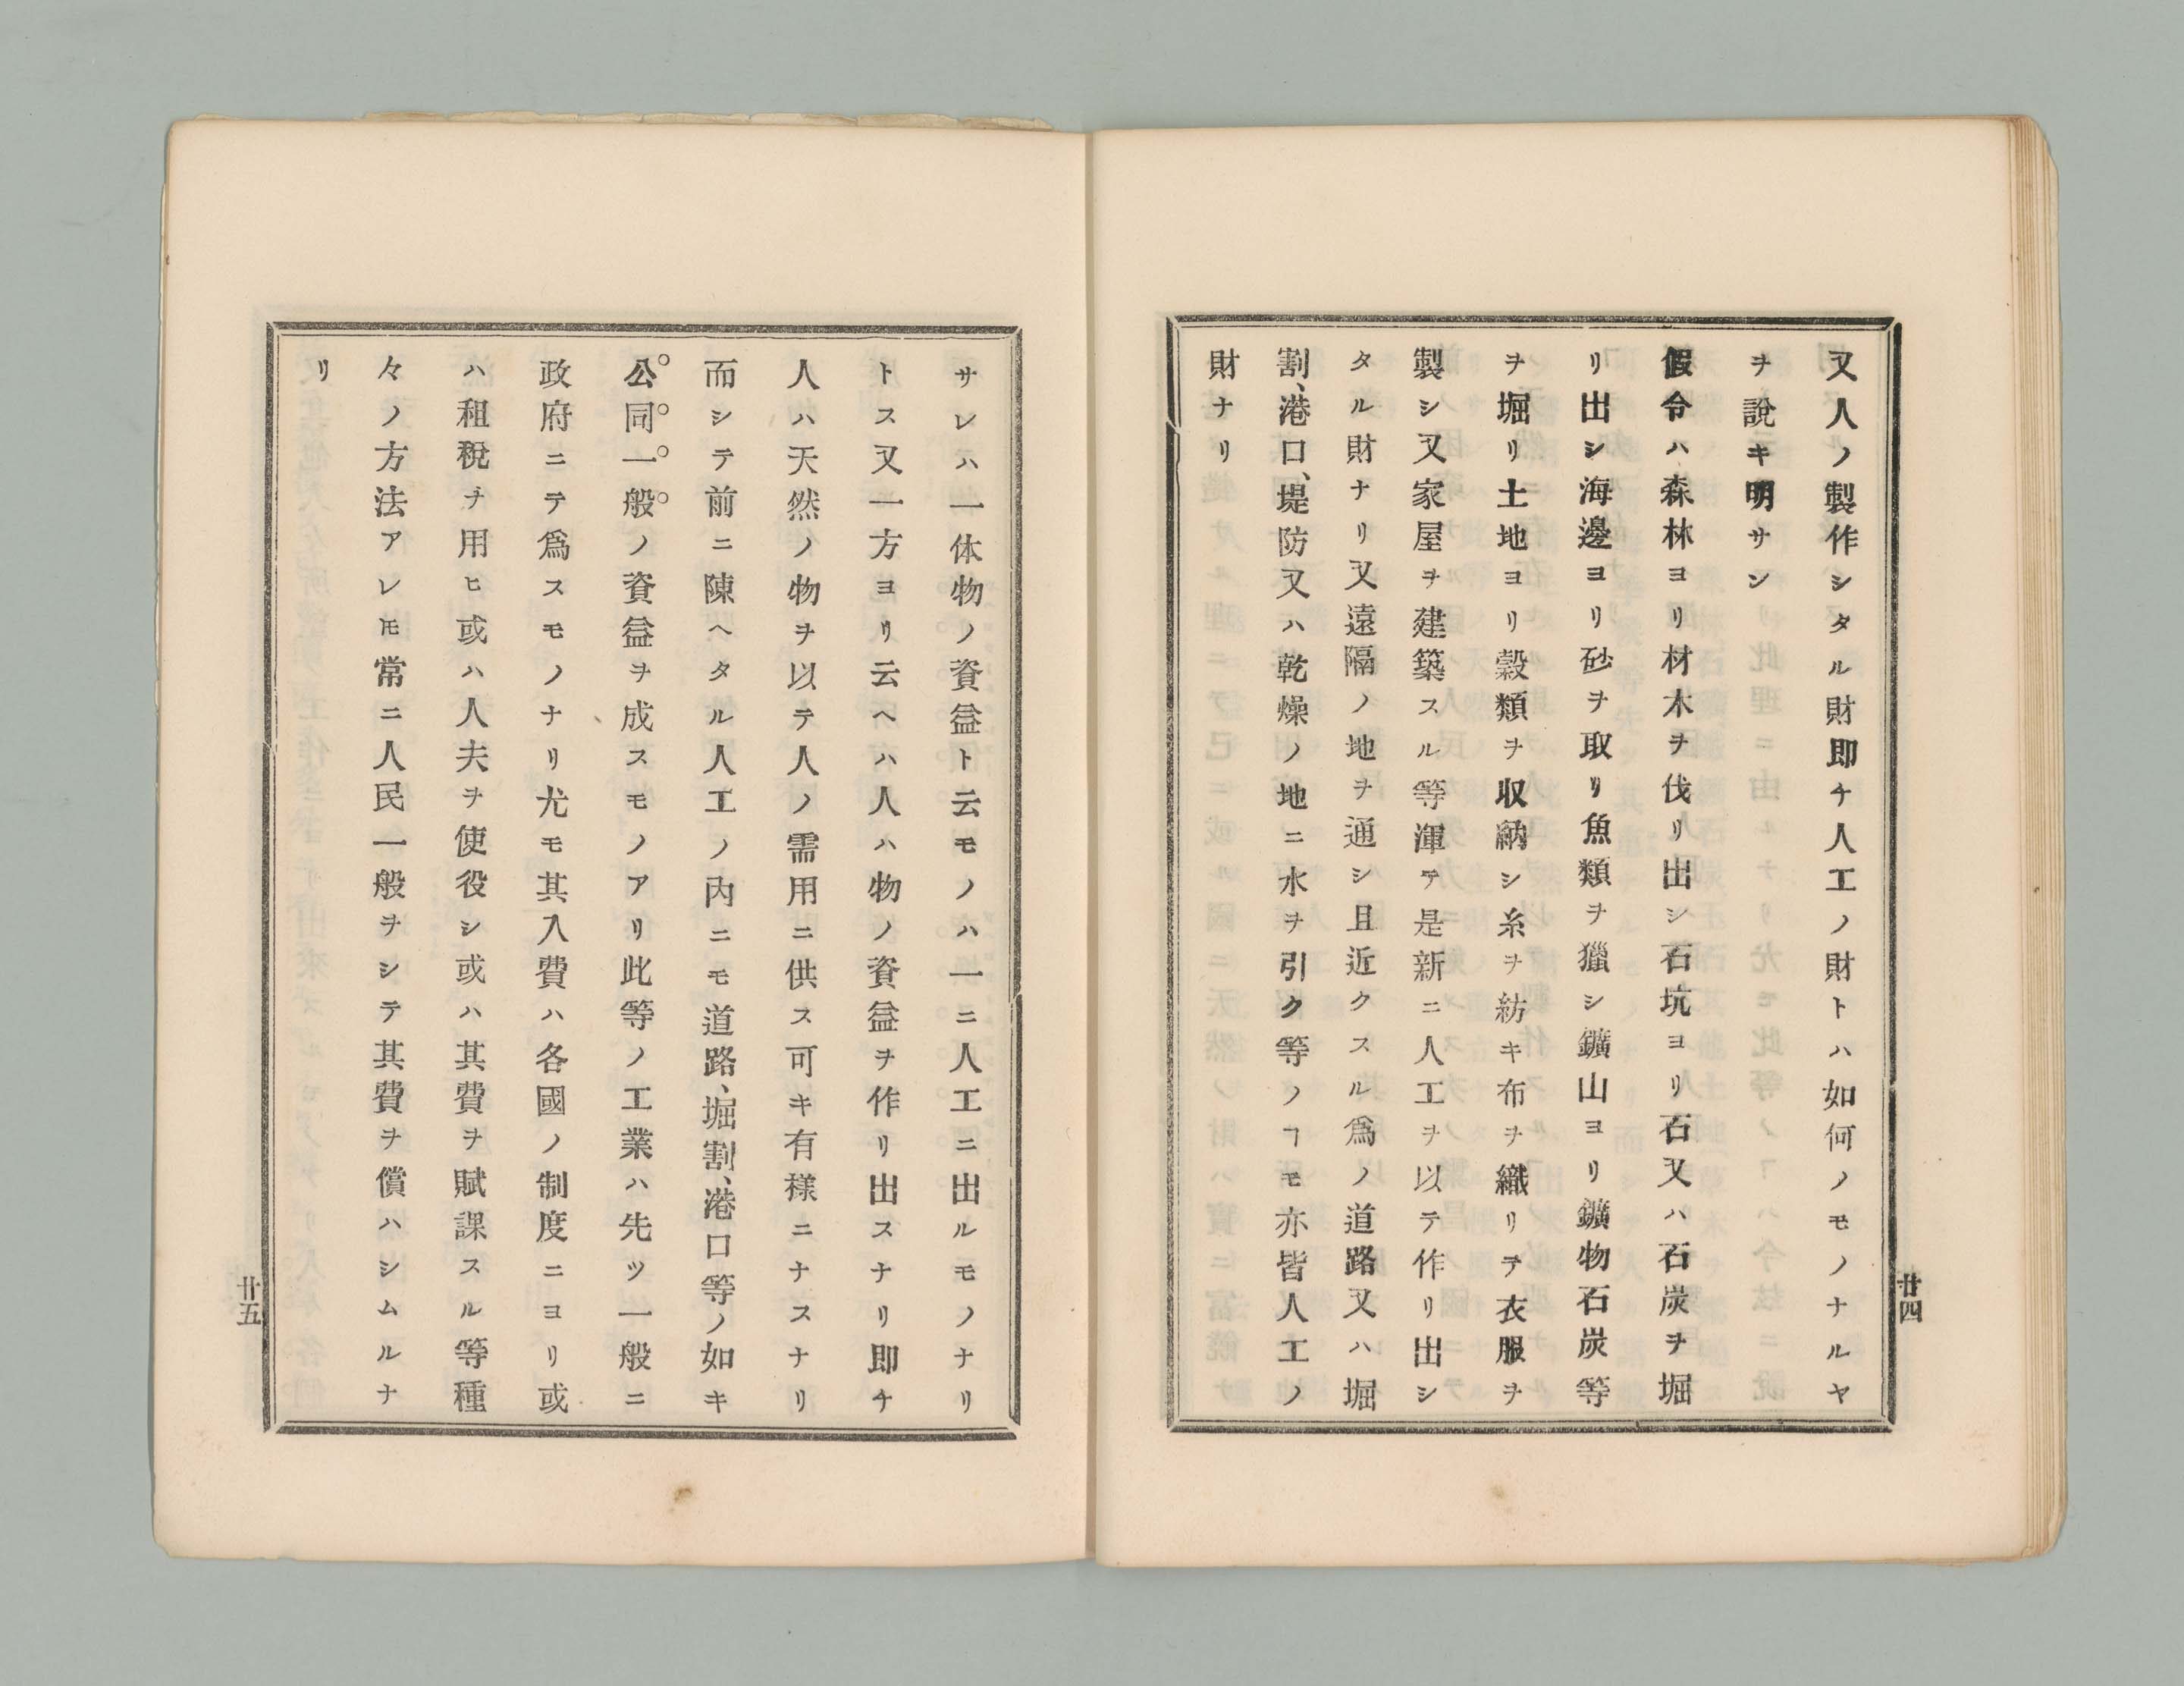 又人ノ製作シタル財即チ人工ノ財トハ如何ノモノナルヤ
ヲ說キ明サン
假令ハ森林ヨリ材木ヲ伐リ出シ石坑ヨリ石又ハ石炭ヲ堀
リ出シ海邊ヨリ砂ヲ取リ魚類ヲ獵シ鑛山ヨリ鑛物石炭等
ヲ堀リ土地ヨリ穀類ヲ収納シ糸ヲ紡キ布ヲ織リテ衣服ヲ
製シ又家屋ヲ建築スル等渾テ是新ニ人工ヲ以テ作リ出シ
タル財ナリ又遠隔ノ地ヲ通シ且近クスル爲ノ道路又ハ堀
割、港口、堤防又ハ乾燥ノ地ニ水ヲ引ク等ノヿモ亦皆人工ノ
財ナリ
廿四
サレハ一体物ノ資益ト云モノハ一ニ人工ニ出ルモノナリ
トス又一方ヨリ云ヘハ人ハ物ノ資益ヲ作リ出スナリ即チ
人ハ天然ノ物ヲ以テ人ノ需用ニ供ス可キ有樣ニナスナリ
而シテ前ニ陳ヘタル人工ノ內ニモ道路、堀割、港口等ノ如キ
公同一般ノ資益ヲ成スモノアリ此等ノ工業ハ先ツ一般ニ
政府ニテ爲スモノナリ尤モ其入費ハ各國ノ制度ニヨリ或
ハ租稅ヲ用ヒ或ハ人夫ヲ使役シ或ハ其費ヲ賦課スル等種
々ノ方法アレ𪜈常ニ人民一般ヲシテ其費ヲ償ハシムルナ
リ
廿五